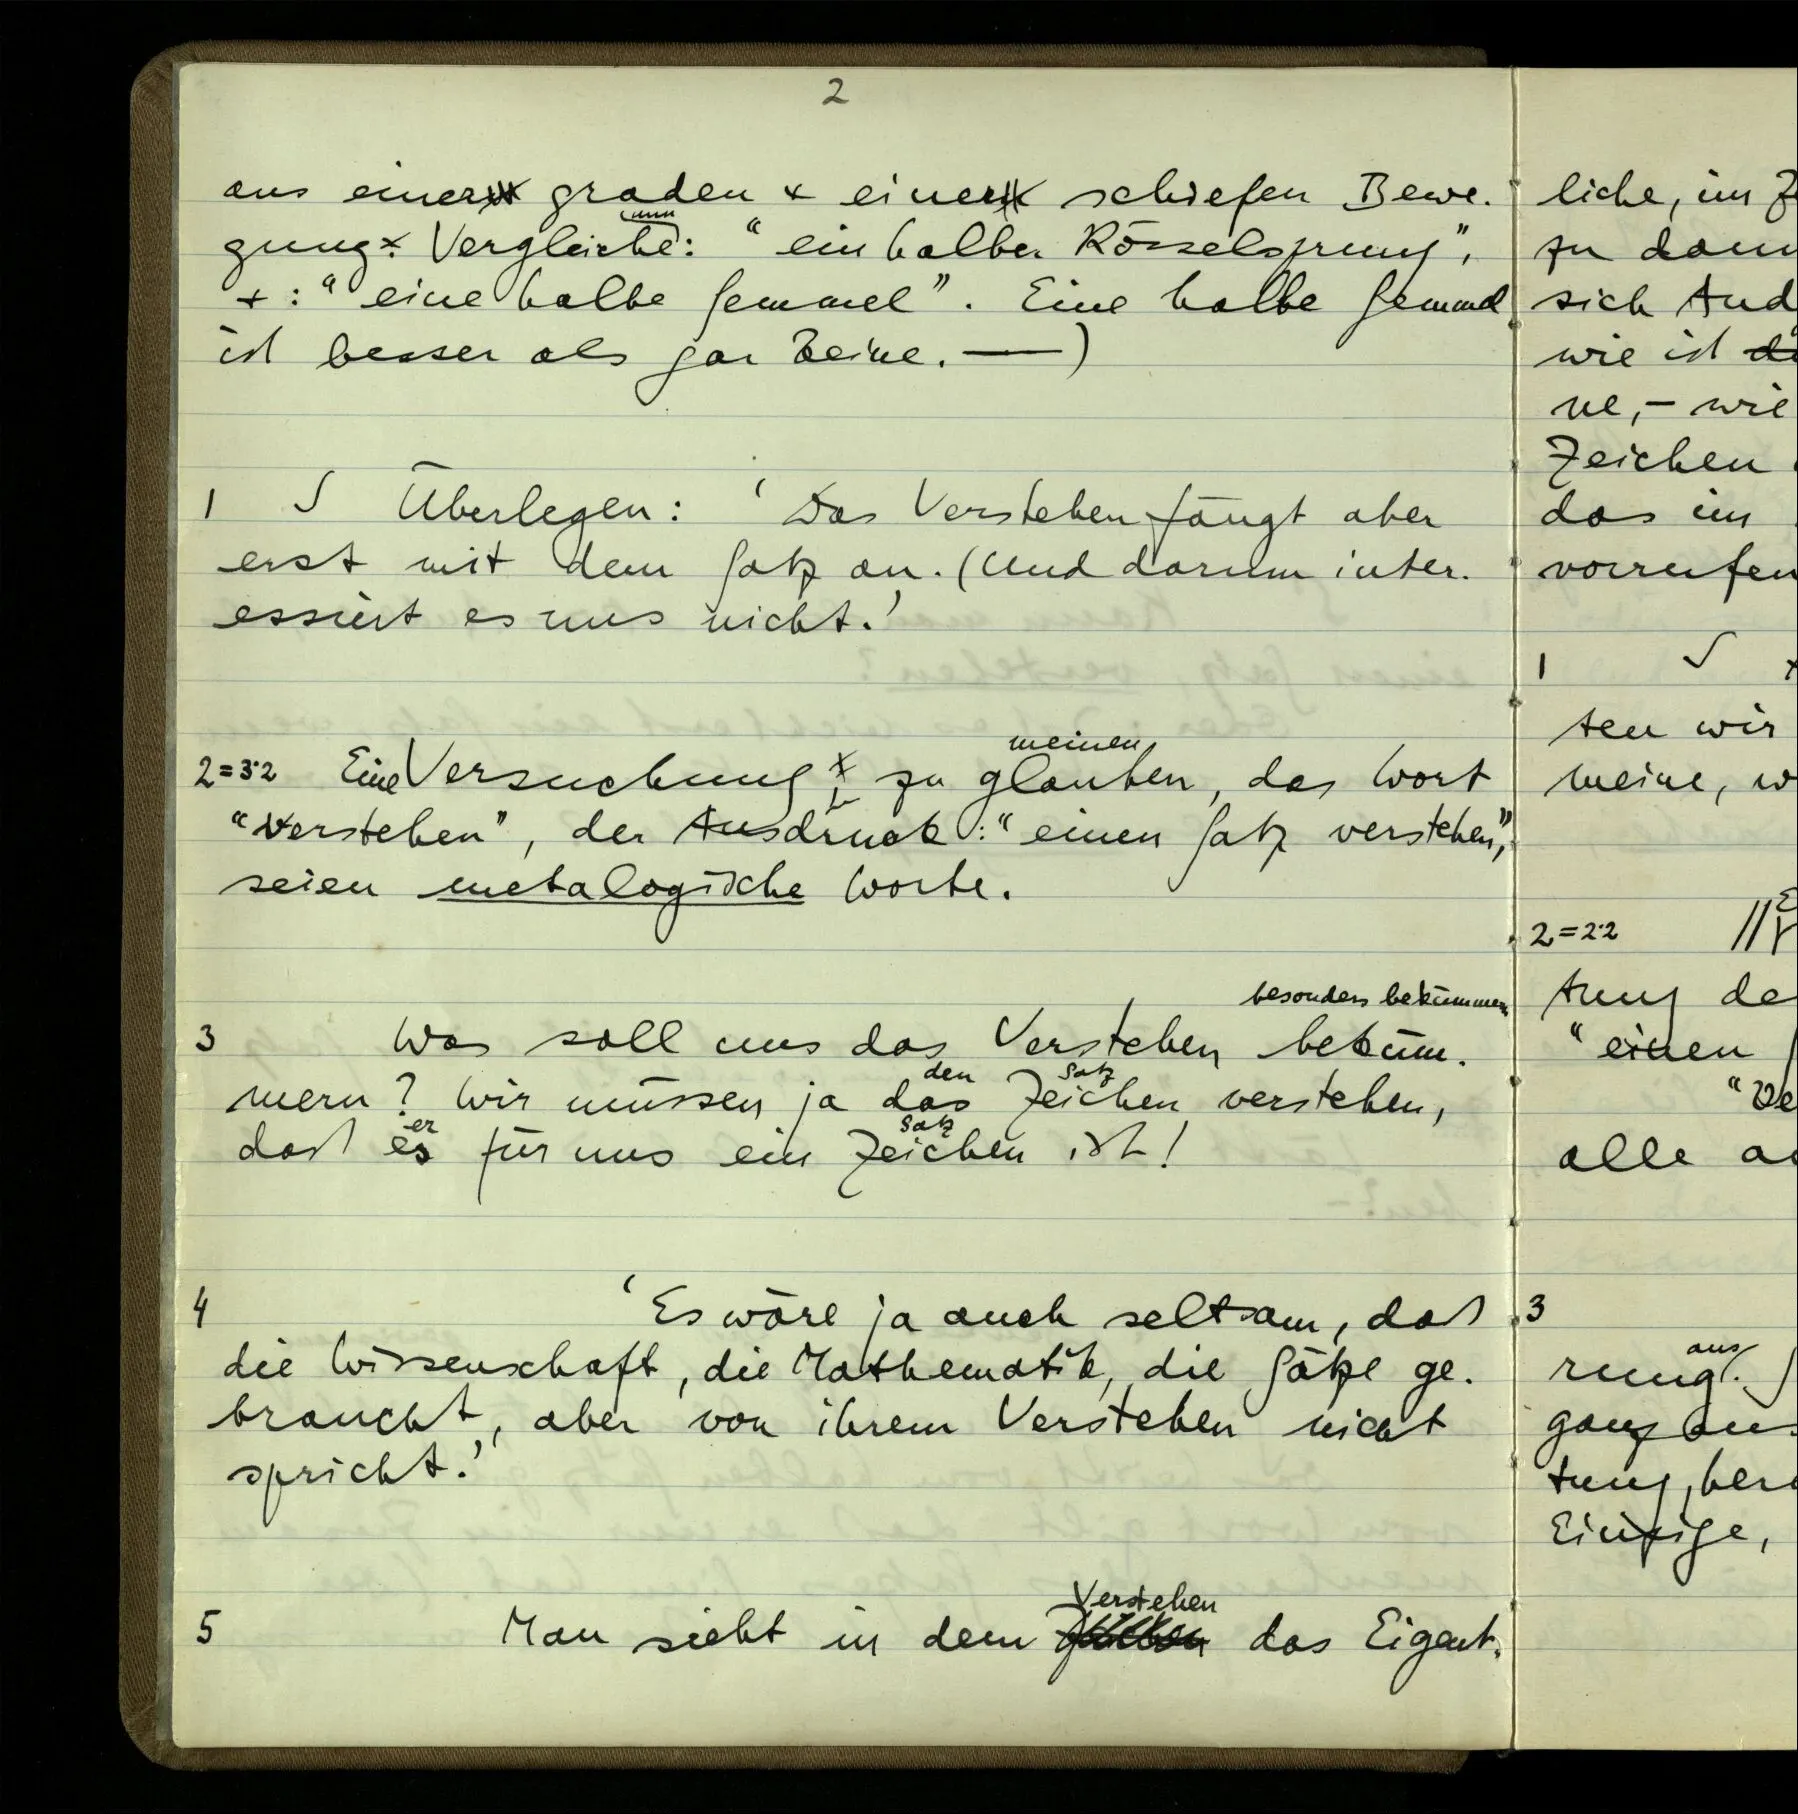 2
aus einer graden + einer schiefen Bewe-
gung. Vergleiche nun: "ein halber Rösselsprung",
+: "eine halbe Semmel". Eine halbe Semmel
ist besser als gar keine. —)
1 ∫ Überlegen: 'Das Verstehen fängt aber
erst mit dem Satz an. (Und darum inter-
essiert es uns nicht.'
meinen
2=3·2 Eine Versuchung, zu glauben, das Wort
"verstehen", der Ausdruck: "einen Satz verstehen",
seien metalogische Worte.
besonders bekümmern
3 Was soll uns das Verstehen beküm-
den Satz
mern? Wir müssen ja das Zeichen verstehen,
er Satz
daß es für uns ein Zeichen ist!
4 'Es wäre ja auch seltsam, daß
die Wissenschaft, die Mathematik, die Sätze ge-
braucht, aber von ihrem Verstehen nicht
spricht.'
Verstehen
5 Man sieht in dem das Eigent-
liche, im Z
zu dem
sich And
wie ist
ne,– wie
Zeichen
das im
vorrufen
1 ∫
ten wir
meine, w
2=2·2 //
tung de
"einen
"Ve
alle
3
aus
rung.
ganz
tung, ber
Einzige,